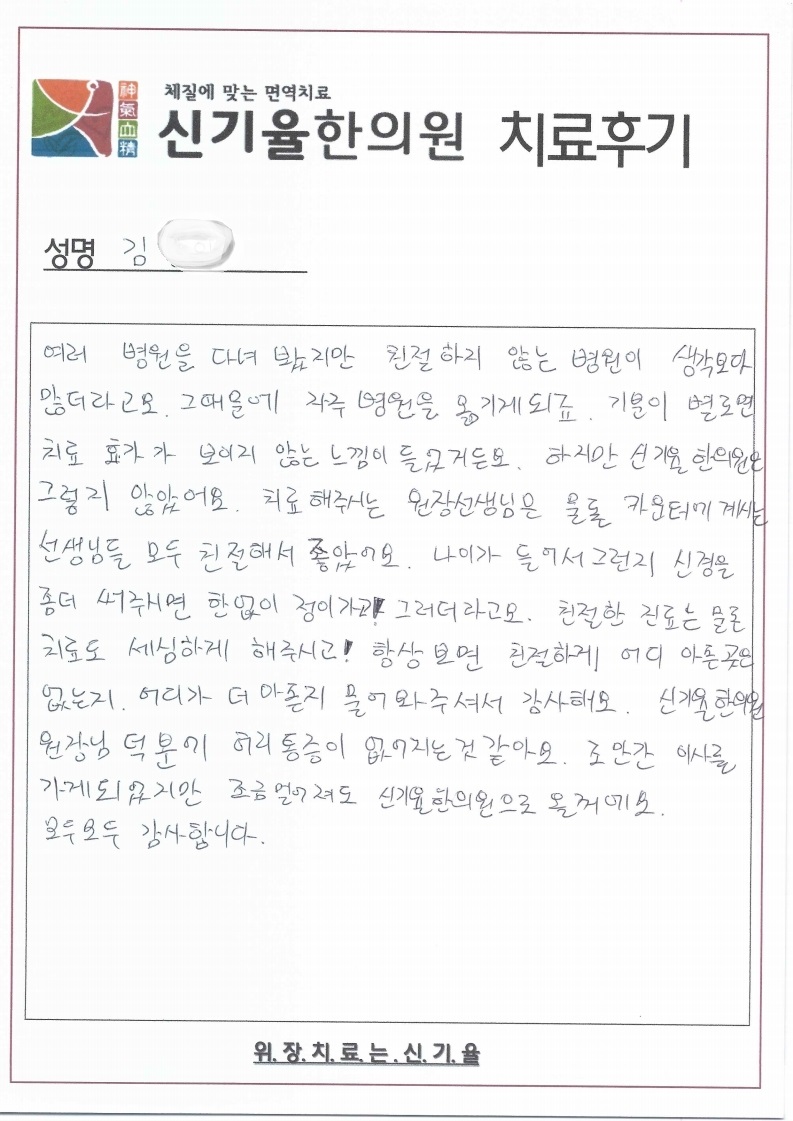 체질에 맞는 면역치료
神氣血精
신기율한의원 치료후기
성명 김
여러 병원을 다녀 봤지만 친절하지 않는 병원이 생각보다
많더라고요. 그때을에 자주 병원을 옮기게되죠. 기분이 별로면
치료 효과가 보이지 않는 느낌이 들었거든요. 하지만 신기율한의원은
그렇지 않았어요. 치료해주시는 원장선생님은 물롤 카운터에 계시는
선생님들 모두 친절해서 좋았어요. 나이가 들어서그런지 신경을
좀더 써주시면 한없이 정이가고! 그러더라고요. 친절한 진료는 물론
치료도 세심하게 해주시고! 항상보면 친절하게 어디 아픈곳은
없는지. 어디가 더 아픈지 물어봐주셔서 감사해요. 신기율한의원
원장님 덕분에 허리통증이 없어지는것 같아요. 조만간 이사를
가게되었지만 조금멀어져도 신기율한의원으로 올꺼에요.
모두모두 감사합니다.
위.장.치.료.는.신.기.율